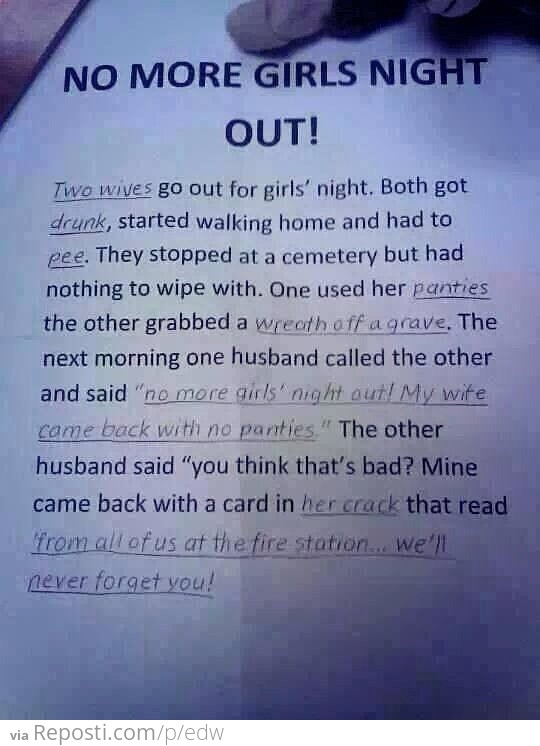 NO MORE GIRLS NIGHT
OUT!
Two wives go out for girls' night. Both got
drunk, started walking home and had to
pee. They stopped at a cemetery but had
nothing to wipe with. One used her panties
the other grabbed a wreath off a grave. The
next morning one husband called the other
and said "no more girls' night out! My wife
came back with no panties." The other
husband said "you think that's bad? Mine
came back with a card in her crack that read
'from all of us at the fire station... we'll
never forget you!
via Reposti.com/p/edw